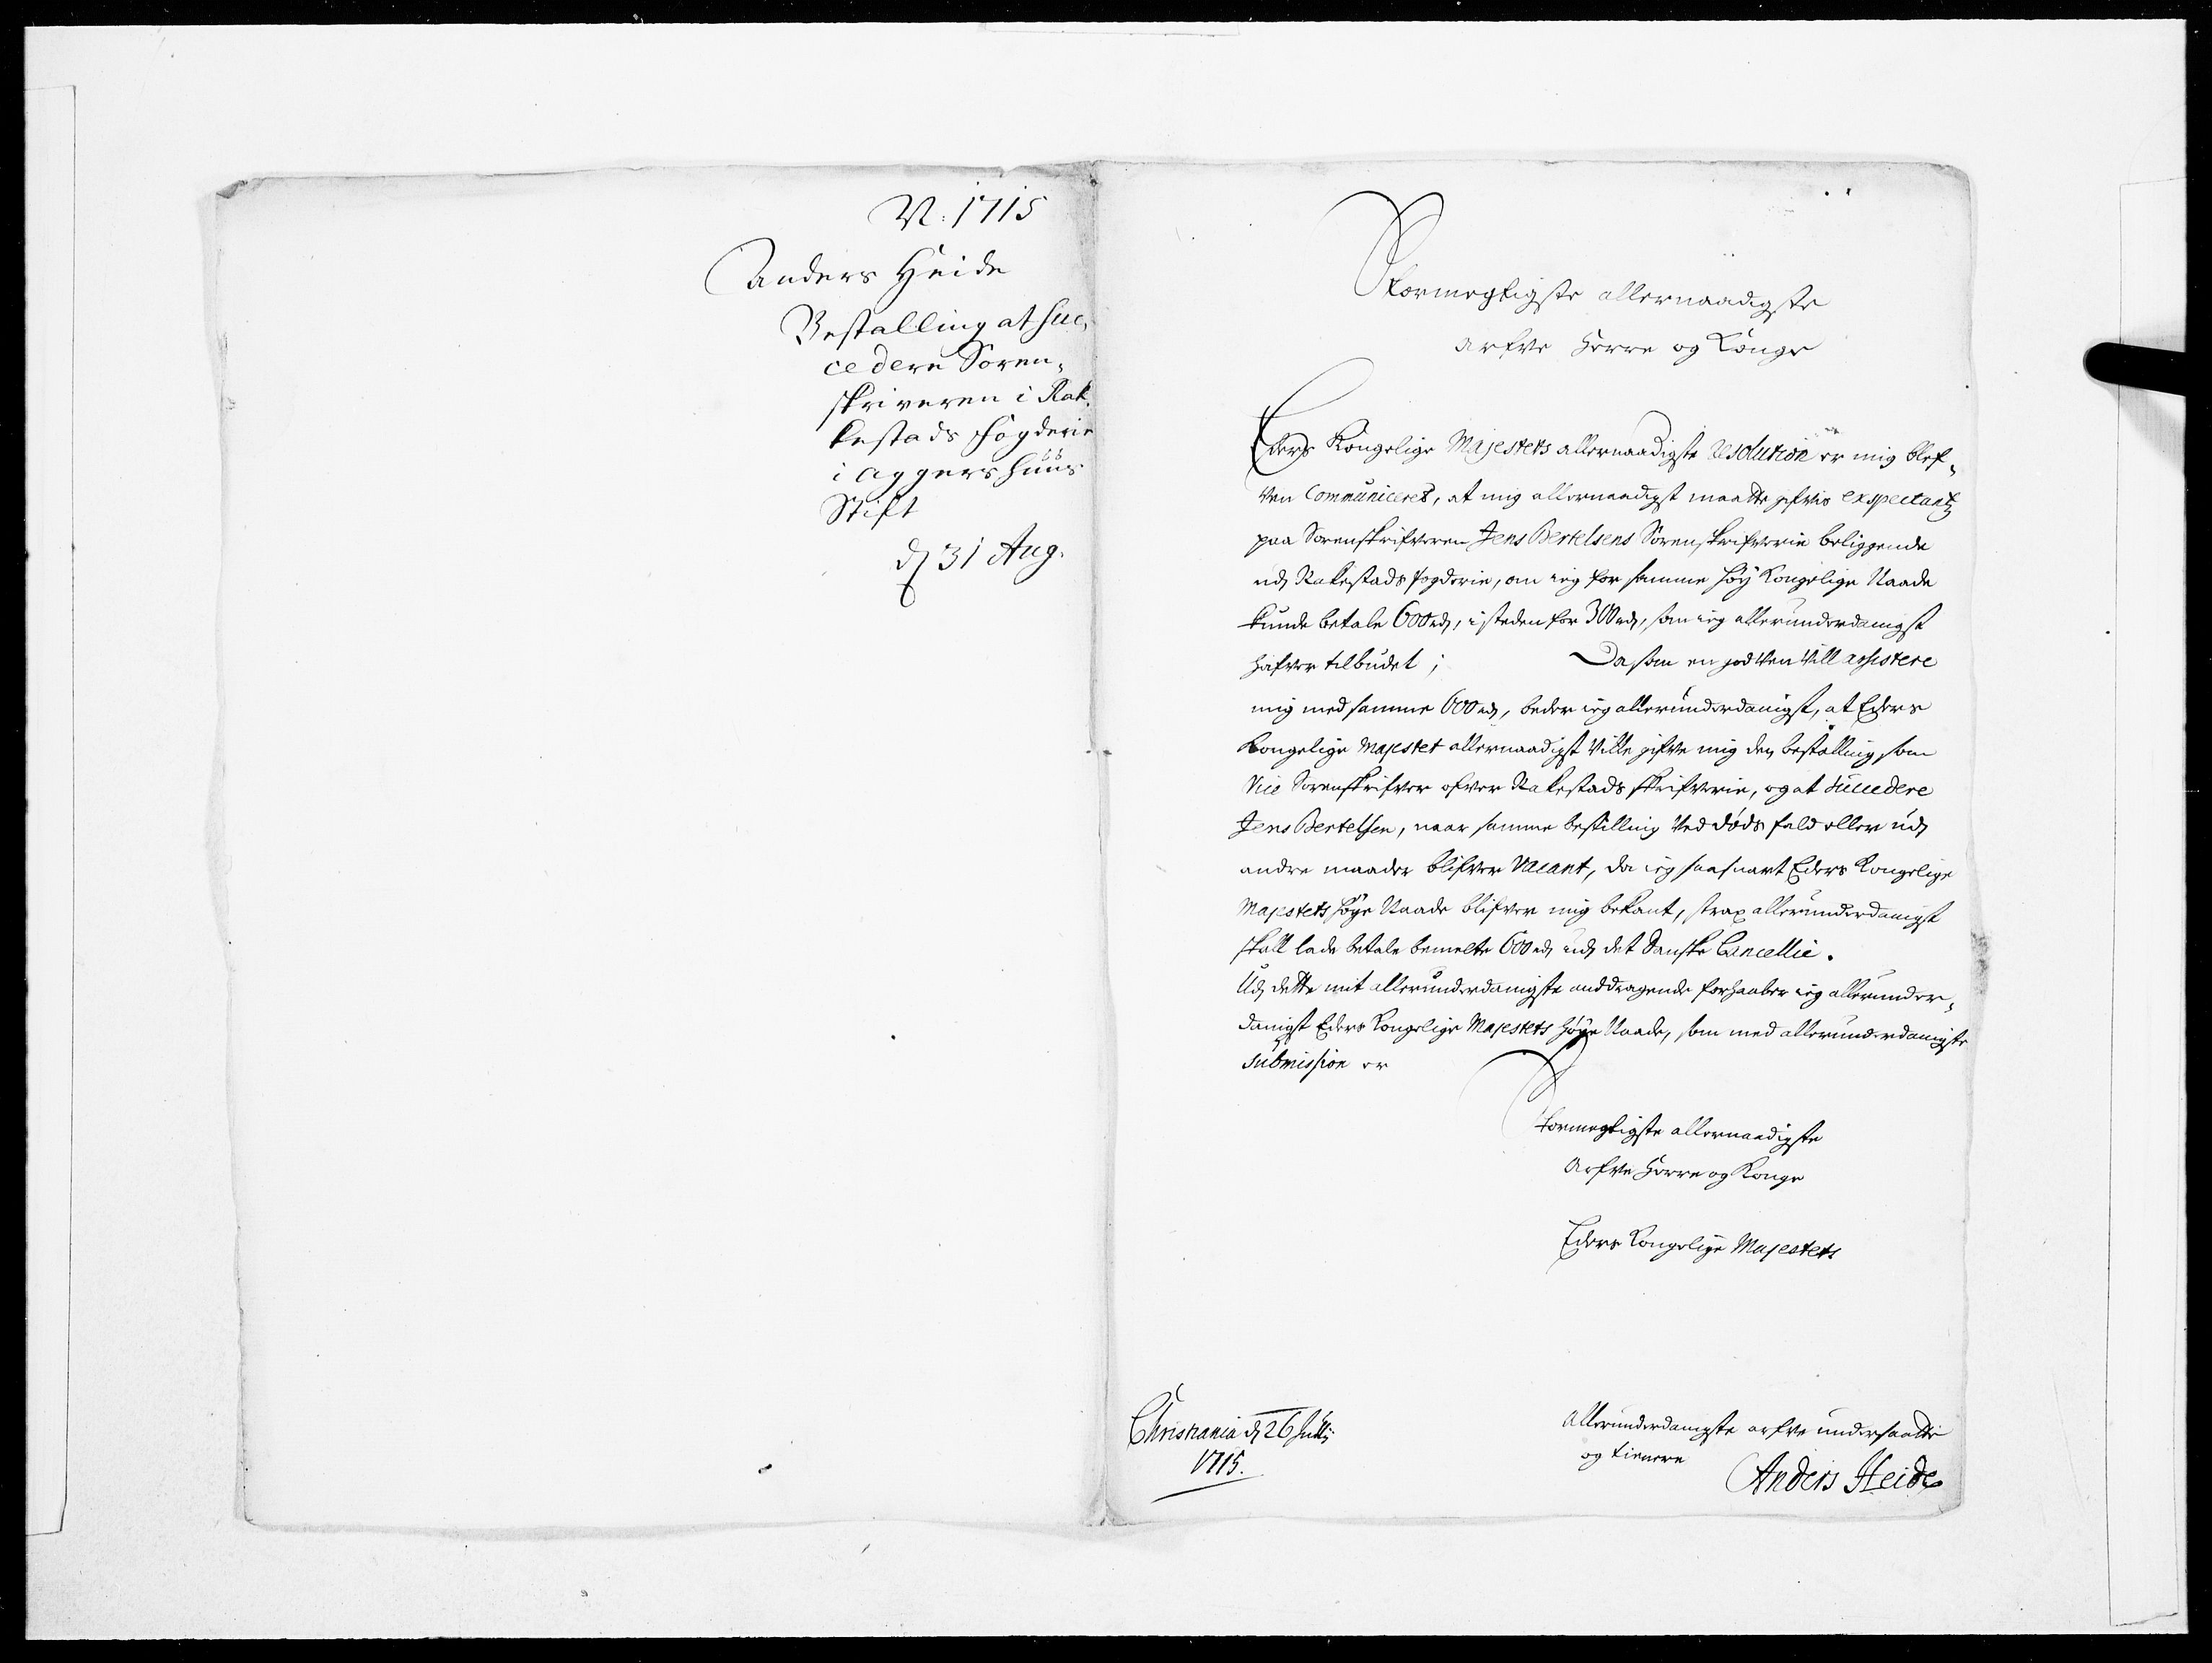 N: 1715
Anders Heide
Bestalling at suc¬
cedere Soren¬
skriveren i Rak¬
kestads Fogderie
i Aggershuus
Stift
d 31 Aug.
Stormegtigste allernaadigste
Arfve Herre og Konge
Eders Kongelige Majestets allernaadigste Resolution er mig blef¬
ven Communiceret, at mig allernaadigst maatte gifves expectantz
paa Sorenskrifveren Jens Bertelsens Sorenskrifverie beliggende
udj Rakestads fogderie, om ieg for samme høy Kongelige Naade
kunde betale 600 rd, i steden for 300 rd, som ieg allerunderdanigst
hafver tilbudet; Da som en god Ven Vill assistere
mig med samme 600 rd, beder ieg allerunderdanigst, at Eders
Kongelige Majestet allernaadigst Ville gifve mig den bestalling som
Vice Sorenskrifver ofver Rakestads skrifverie, og at succedere
Jens Bertelsen, naar samme bestilling Ved døds fald eller udj
andre maader blifver Vacant, da ieg saasnart Eders Kongelige
Majestets høye Naade blifver mig bekant, strax allerunderdanigst
skall lade betale bemelte 600 rd udj det Danske Cancellie.
Udj dette mit allerunderdanigste anddragende forhaaber ieg allerunder¬
danigst Eders Kongelige Majestets høye Naade, som med allerunderdanigste
submission er
Stormegtigste allernaadigste
Arfve Herre og Konge
Eders Kongelige Majestets
Christiania d 26 Julij
1715.
Allerunderdanigste arfve undersaatte
og tienere
Anders Heide